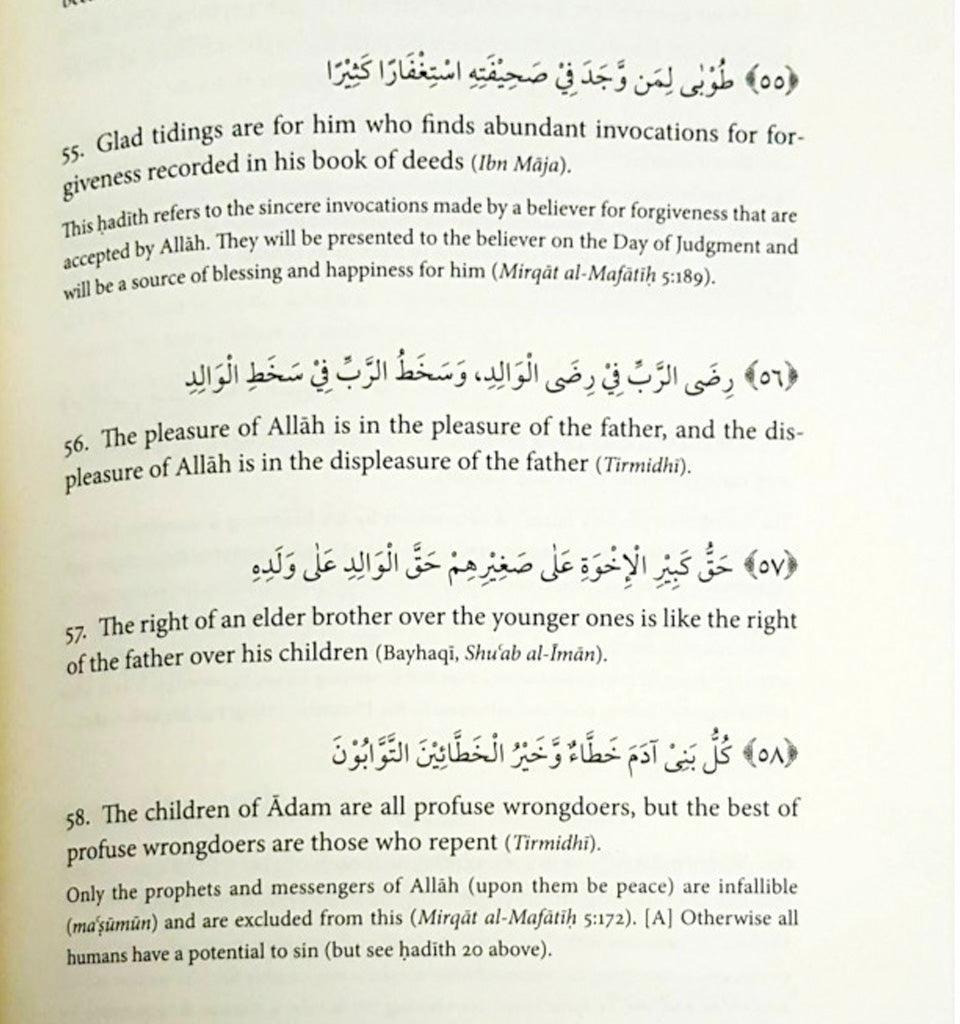 ﴿٥٥﴾ طُوْبٰى لِمَن وَّجَدَ فِيْ صَحِيْفَتِهِ اسْتِغْفَارًا كَثِيْرًا
55. Glad tidings are for him who finds abundant invocations for for-
giveness recorded in his book of deeds (Ibn Māja).
This ḥadīth refers to the sincere invocations made by a believer for forgiveness that are
accepted by Allāh. They will be presented to the believer on the Day of Judgment and
will be a source of blessing and happiness for him (Mirqāt al-Mafātīḥ 5:189).
﴿٥٦﴾ رِضَى الرَّبِّ فِيْ رِضَى الْوَالِدِ، وَسَخَطُ الرَّبِّ فِيْ سَخَطِ الْوَالِدِ
56. The pleasure of Allāh is in the pleasure of the father, and the dis-
pleasure of Allāh is in the displeasure of the father (Tirmidhī).
﴿٥٧﴾ حَقُّ كَبِيْرِ الْإِخْوَةِ عَلٰى صَغِيْرِهِمْ حَقَّ الْوَالِدِ عَلٰى وَلَدِهِ
57. The right of an elder brother over the younger ones is like the right
of the father over his children (Bayhaqī, Shuʿab al-Īmān).
﴿٥٨﴾ كُلُّ بَنِيْ آدَمَ خَطَّاءٌ وَّخَيْرُ الْخَطَّائِيْنَ التَّوَّابُوْنَ
58. The children of Ādam are all profuse wrongdoers, but the best of
profuse wrongdoers are those who repent (Tirmidhī).
Only the prophets and messengers of Allāh (upon them be peace) are infallible
(maʿṣūmūn) and are excluded from this (Mirqāt al-Mafātīḥ 5:172). [A] Otherwise all
humans have a potential to sin (but see ḥadīth 20 above).